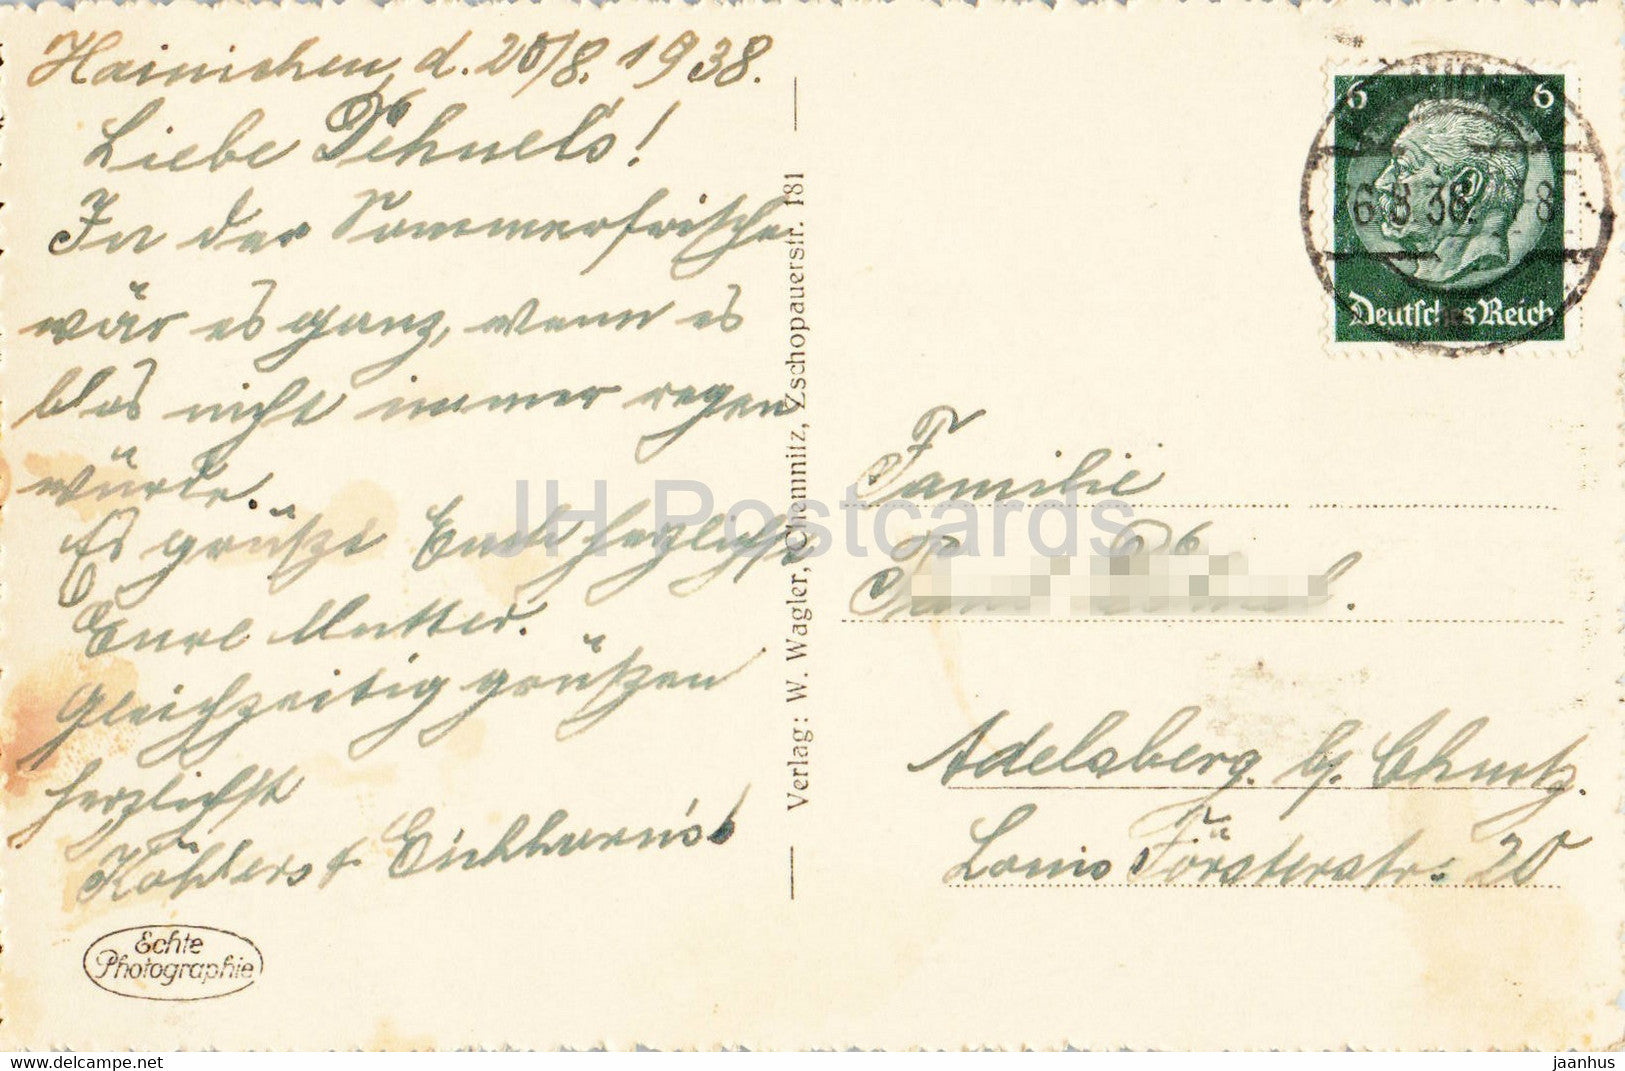 Hainichen, d. 20/8. 1938.
Liebe
In der Sommerfrische
wär es ganz, wenn es
blos nicht immer regen
würde.
Es grüßt Euch herzlichst
Eure Mutter.
Gleichzeitig grüßen
herzlichst
Köhlers & Eichhorn's
Echte
Photographie
Verlag: W. Wagler, Chemnitz, Zschopauerstr. 181
6 6
Deutsches Reich
Familie
Adelsberg b/ Chmtz.
Louis Försterstr. 20
JH Postcards
www.delcampe.net
jaanhus